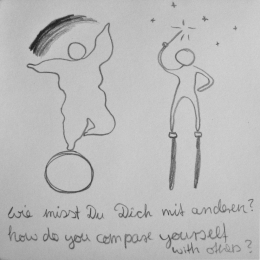 wie misst Du Dich mit anderen?
how do you compare yourself
with others?